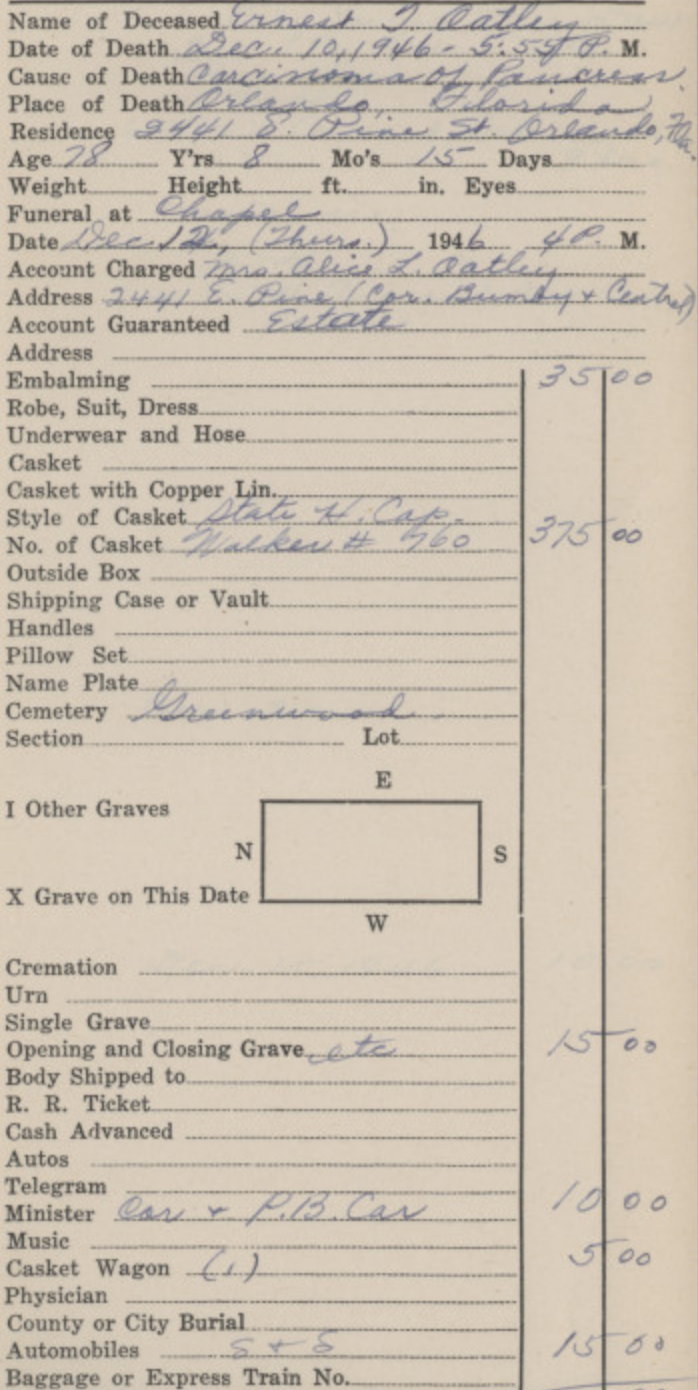 Name of Deceased Ernest T. Oatley
Date of Death Dec. 10, 1946 - 5:55 P. M.
Cause of Death Carcinoma of Pancreas
Place of Death Orlando, Florida
Residence 2441 E. Pine St. Orlando, Fla.
Age 78 Y'rs 8 Mo's 15 Days
Weight Height ft. in. Eyes
Funeral at Chapel
Date Dec. 12, (Thurs.) 1946 4 P. M.
Account Charged Mrs. Alice L. Oatley
Address 2441 E. Pine (Cor. Bumby + Central)
Account Guaranteed Estate
Address
Embalming 35 00
Robe, Suit, Dress
Underwear and Hose
Casket
Casket with Copper Lin.
Style of Casket State H. Cap.
No. of Casket Walker # 760 375 00
Outside Box
Shipping Case or Vault
Handles
Pillow Set
Name Plate
Cemetery Greenwood
Section Lot
E
I Other Graves
N S
X Grave on This Date
W
Cremation
Urn
Single Grave
Opening and Closing Grave etc 15 00
Body Shipped to
R. R. Ticket
Cash Advanced
Autos
Telegram
Minister Car + P.B. Car 10 00
Music
Casket Wagon (1) 5 00
Physician
County or City Burial
Automobiles S + S 15 00
Baggage or Express Train No.